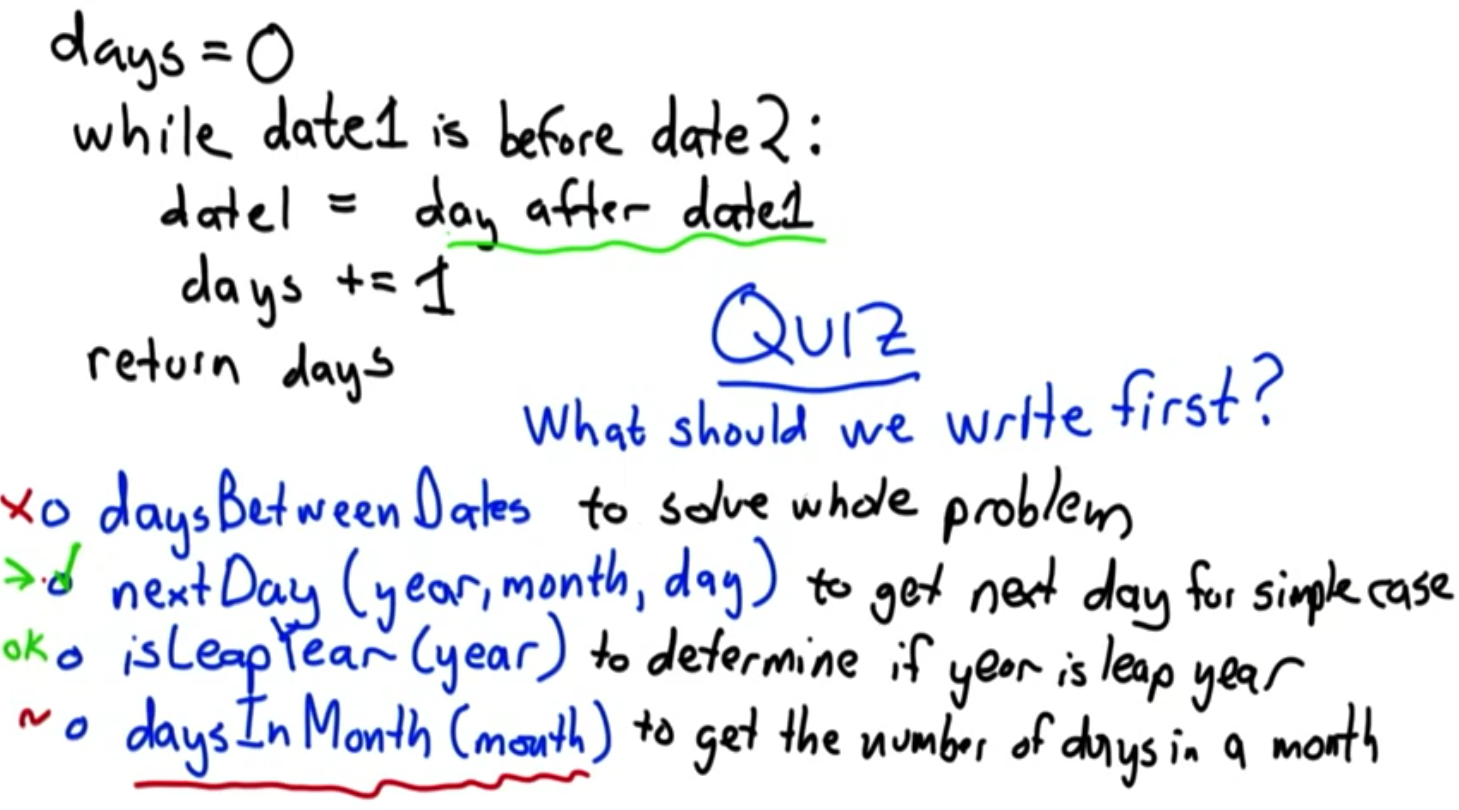 days = 0
while date1 is before date2:
date1 = day after date1
days += 1
return days
QUIZ
What should we write first?
x o daysBetweenDates to solve whole problem
→ o nextDay (year, month, day) to get next day for simple case
ok o isLeapYear (year) to determine if year is leap year
~ o daysInMonth (month) to get the number of days in a month